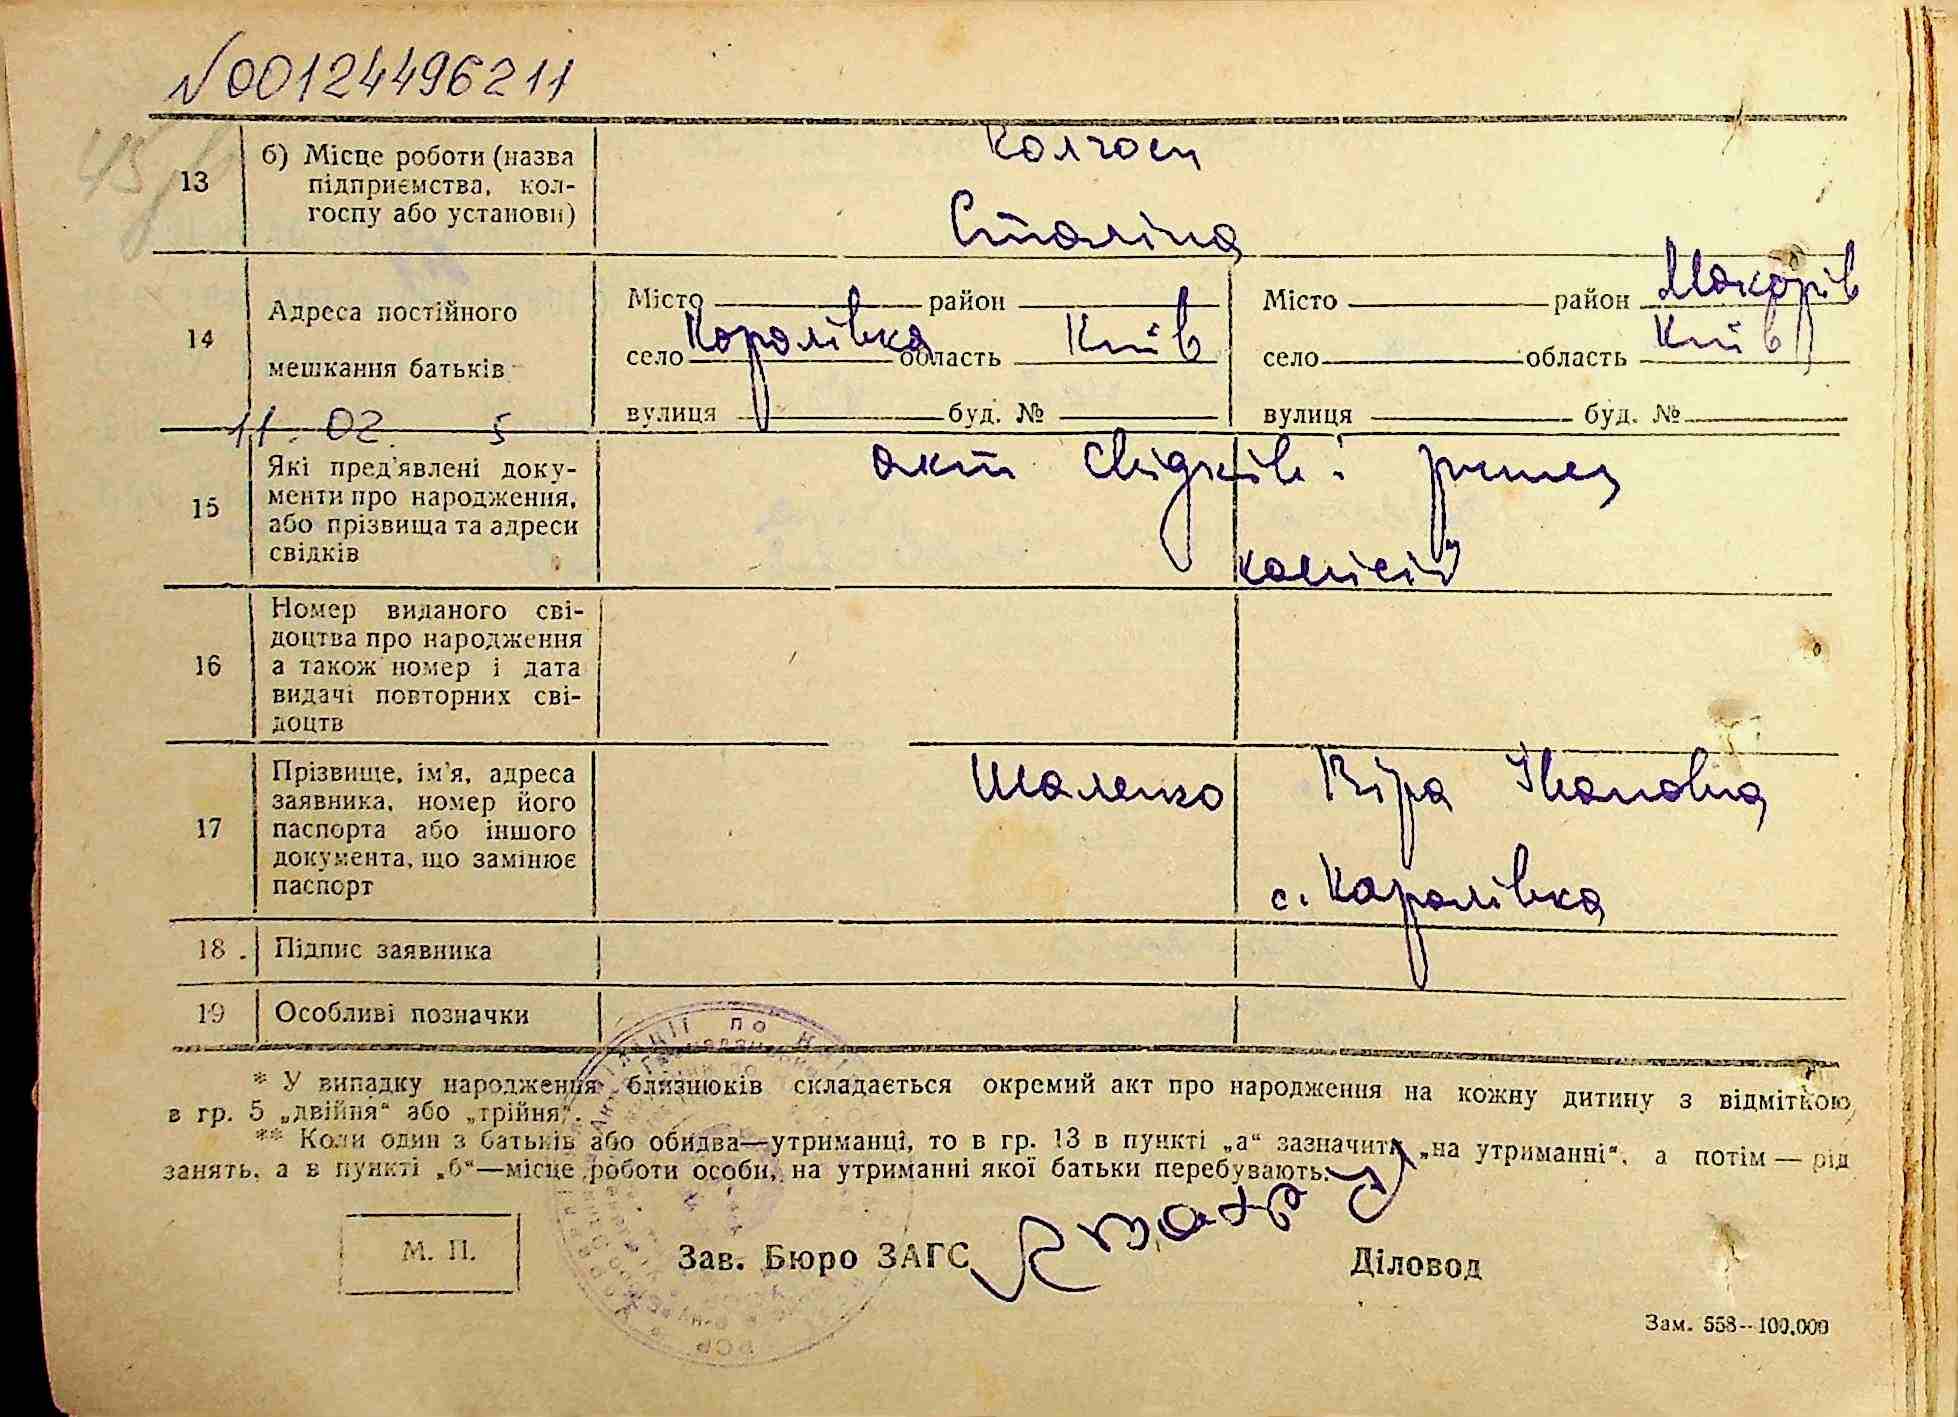 №00124496211
13
б) Місце роботи (назва
підприємства, кол-
госпу або установи)
Колгосп
Сталіна
14
Адреса постійного
мешкання батьків
Місто район
село Королівка область Київ
вулиця буд. №
Місто район Макарів
село область Київ
вулиця буд. №
11. 02. 5
15
Які пред'явлені доку-
менти про народження,
або прізвища та адреси
свідків
акт свідків і
комісії
16
Номер виданого сві-
доцтва про народження
а також номер і дата
видачі повторних сві-
доцтв
17
Прізвище, ім'я, адреса
заявника, номер його
паспорта або іншого
документа, що замінює
паспорт
Шаленко Віра Івановна
с. Каролівка
18. Підпис заявника
19 Особливі позначки
* У випадку народження близнюків складається окремий акт про народження на кожну дитину з відміткою
в гр. 5 „двійня“ або „трійня“.
** Коли один з батьків або обидва—утриманці, то в гр. 13 в пункті „а“ зазначити „на утриманні“, а потім — рід
занять, а в пункті „б“—місце роботи особи, на утриманні якої батьки перебувають.
М. П.
Зав. Бюро ЗАГС
Діловод
Зам. 558—100.000